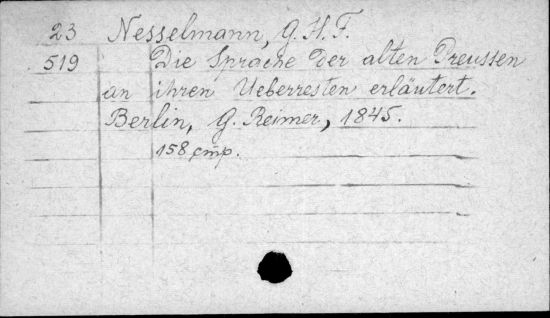 23 Nesselmann, G. H. F.
519 Die Sprache der alten Preussen
an ihren Ueberresten erläutert.
Berlin, G. Reimer, 1845.
158 стр.